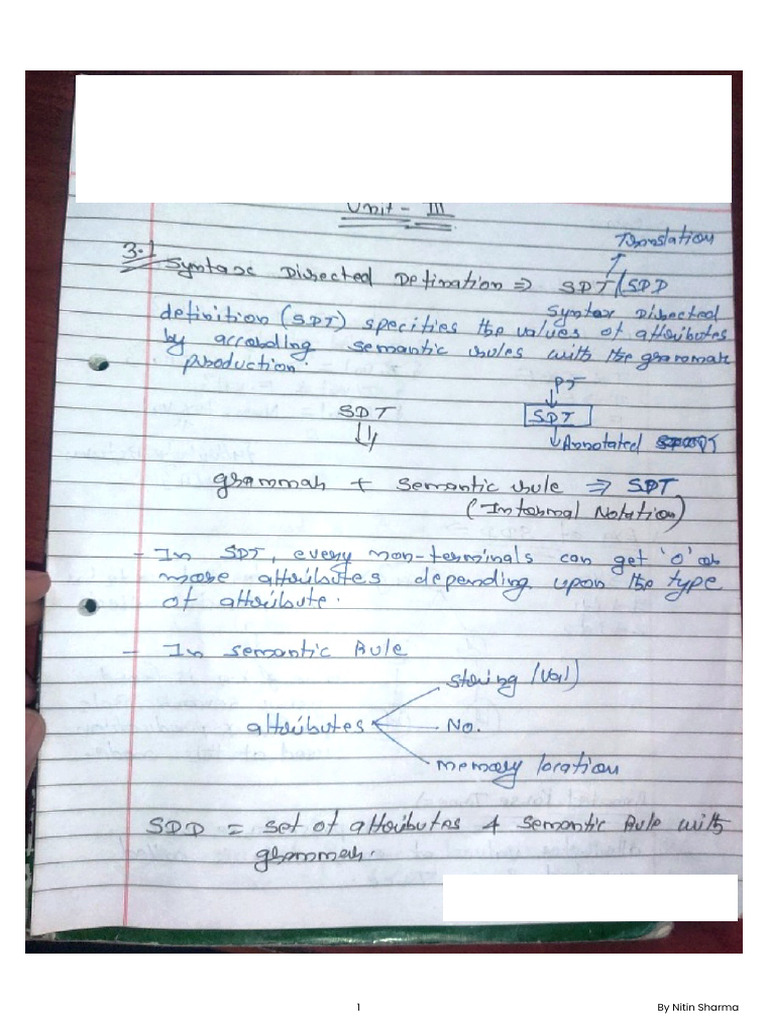 Unit - III
Translation
3.1 Syntax Directed Defination ⇒ SDT/SDD
Syntax Directed
definition (SDT) specifies the values of attributes
by according semantic rules with the grammar
production.
PT
SDT
SDT
Annotated PT
grammar + semantic rule ⇒ SDT
(Internal Notation)
- In SDT, every non-terminals can get 'o' or
more attributes depending upon the type
of attribute.
- In semantic Rule
string (val)
attributes No.
memory location
SDD = set of attributes & semantic Rule with
grammar.
1 By Nitin Sharma